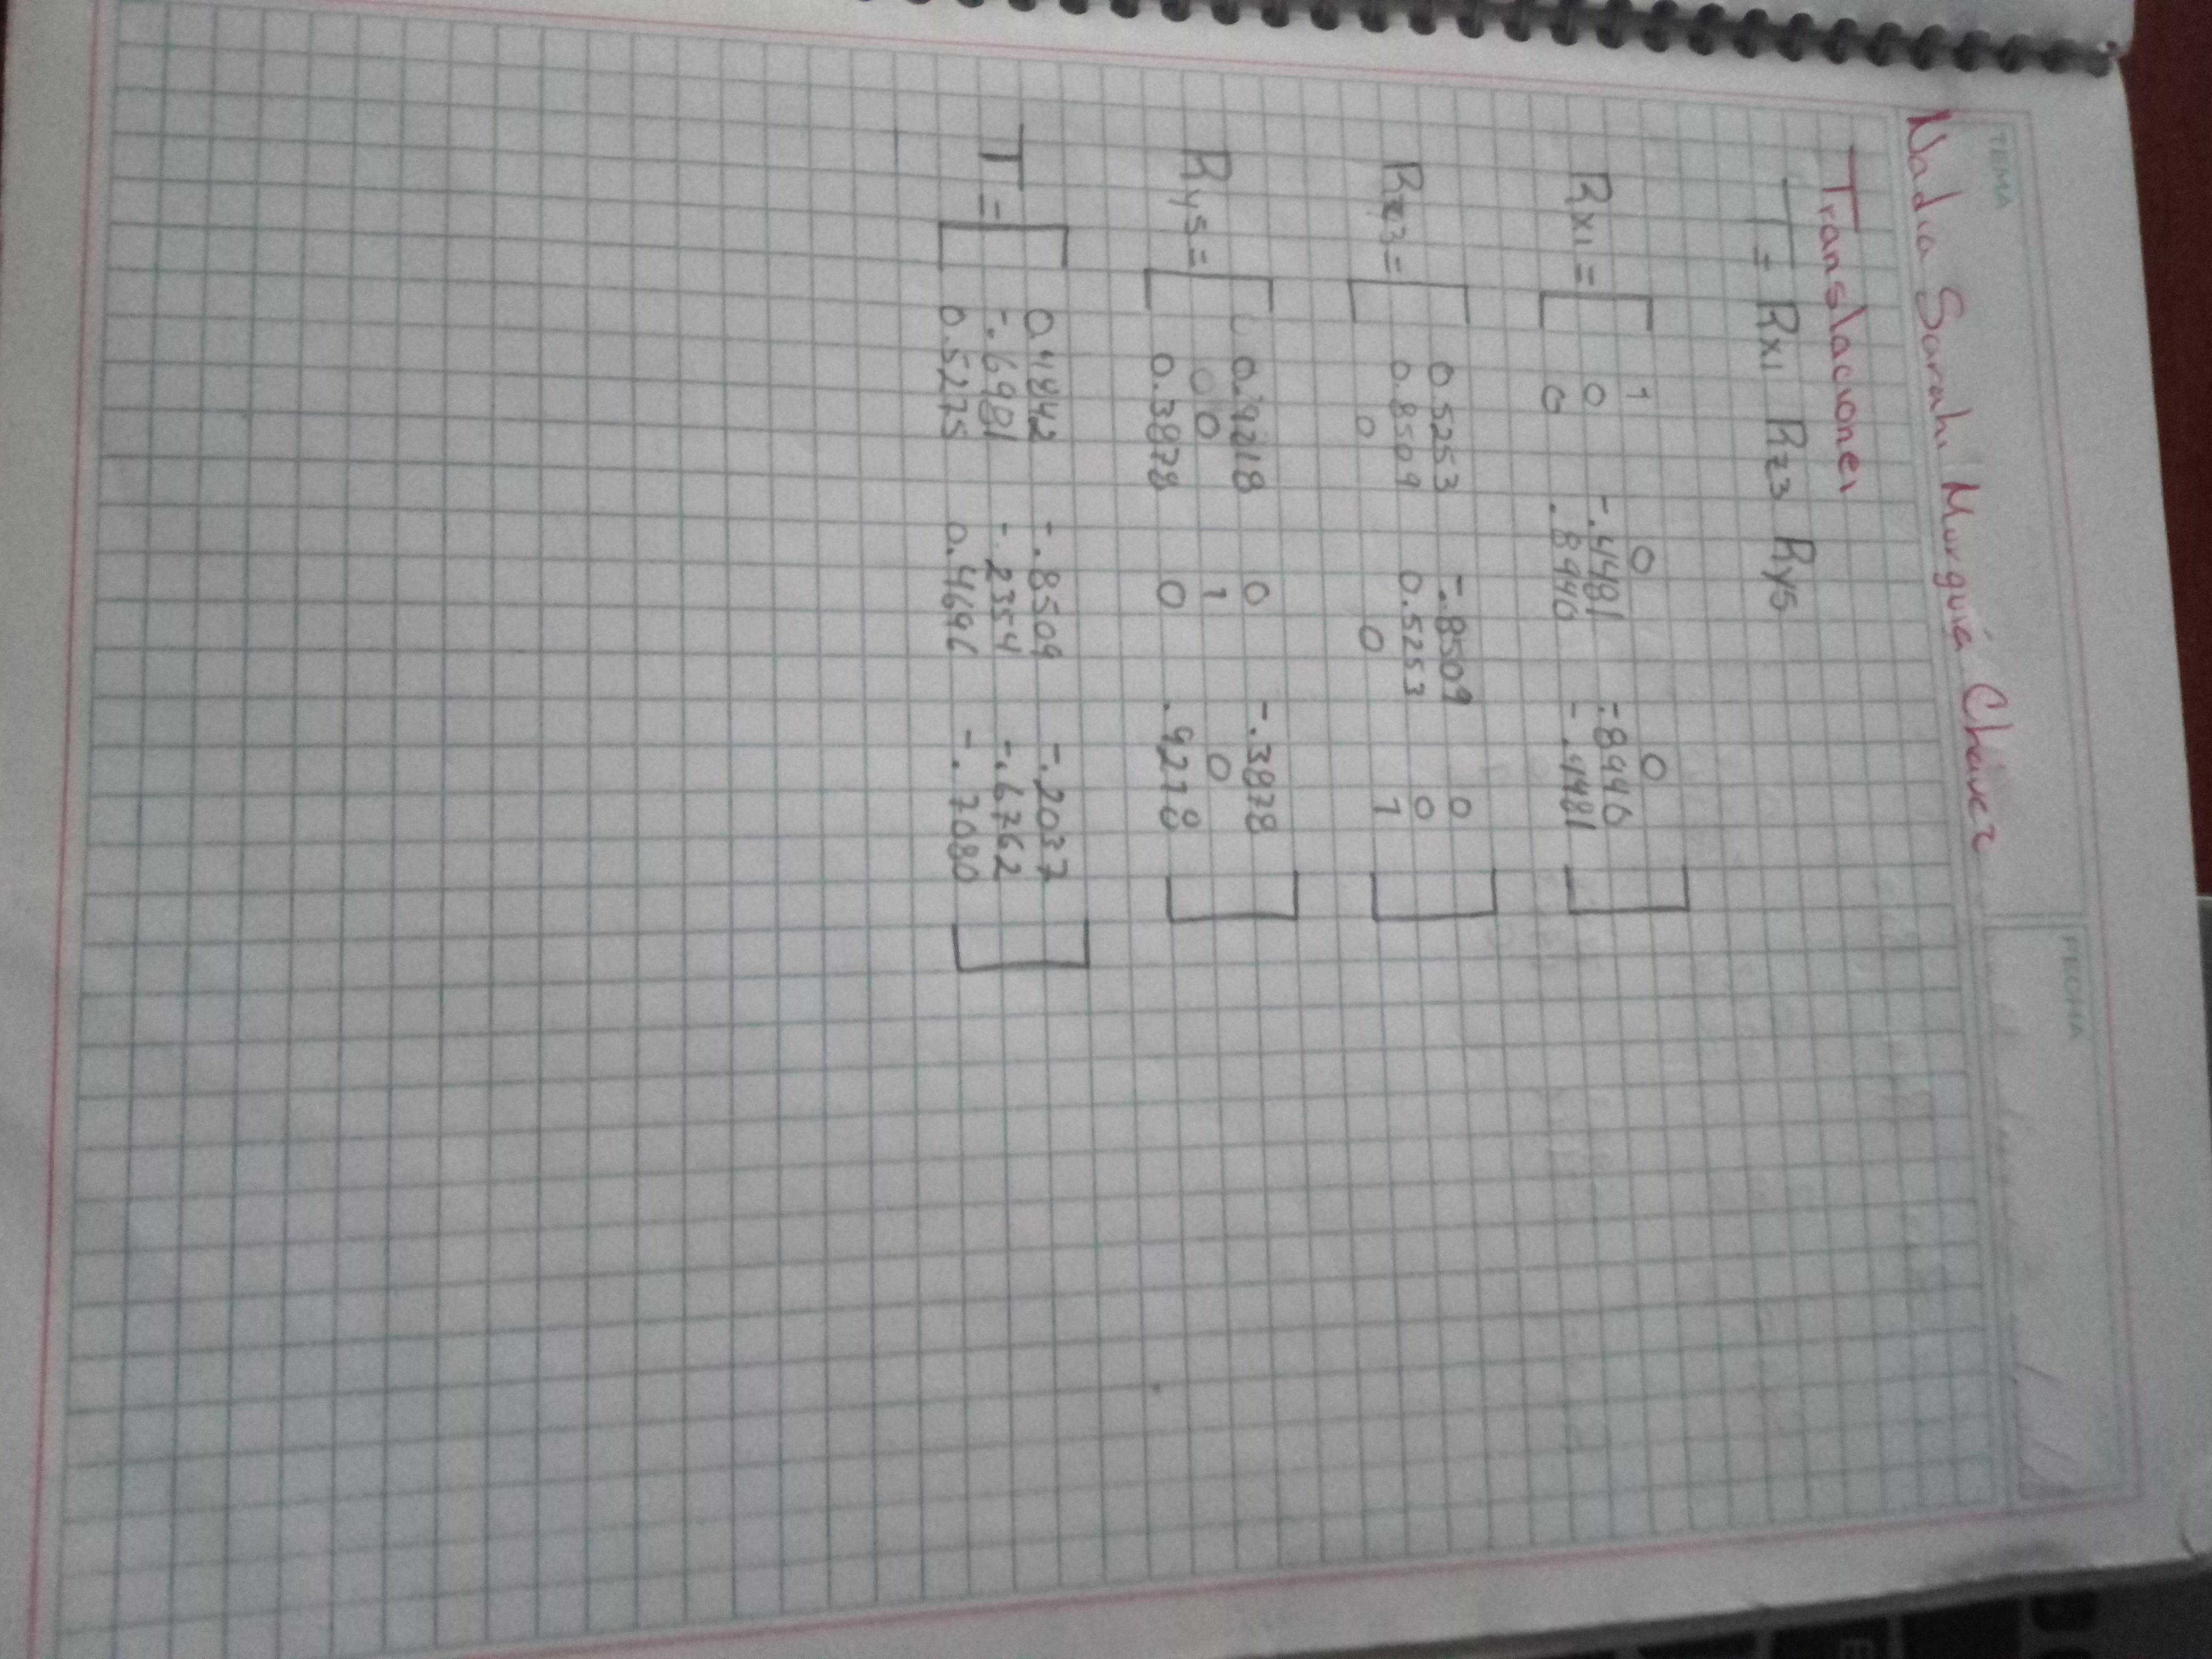 TEMA
FECHA
Nadia Sarahi Murguía Chávez
Translaciones
T = Rx1 Rz3 Ry5
1 0 0
Rx1 = 0 -.4481 -.8940
0 .8940 -.4481
0.5253 -.8509 0
Rz3 = 0.8509 0.5253 0
0 0 1
0.9218 0 -.3878
Ry5 = 0 1 0
0.3878 0 .9218
0.4842 -.8509 -.2037
T = -.6981 -.2354 -.6762
0.5275 0.4696 -.7080